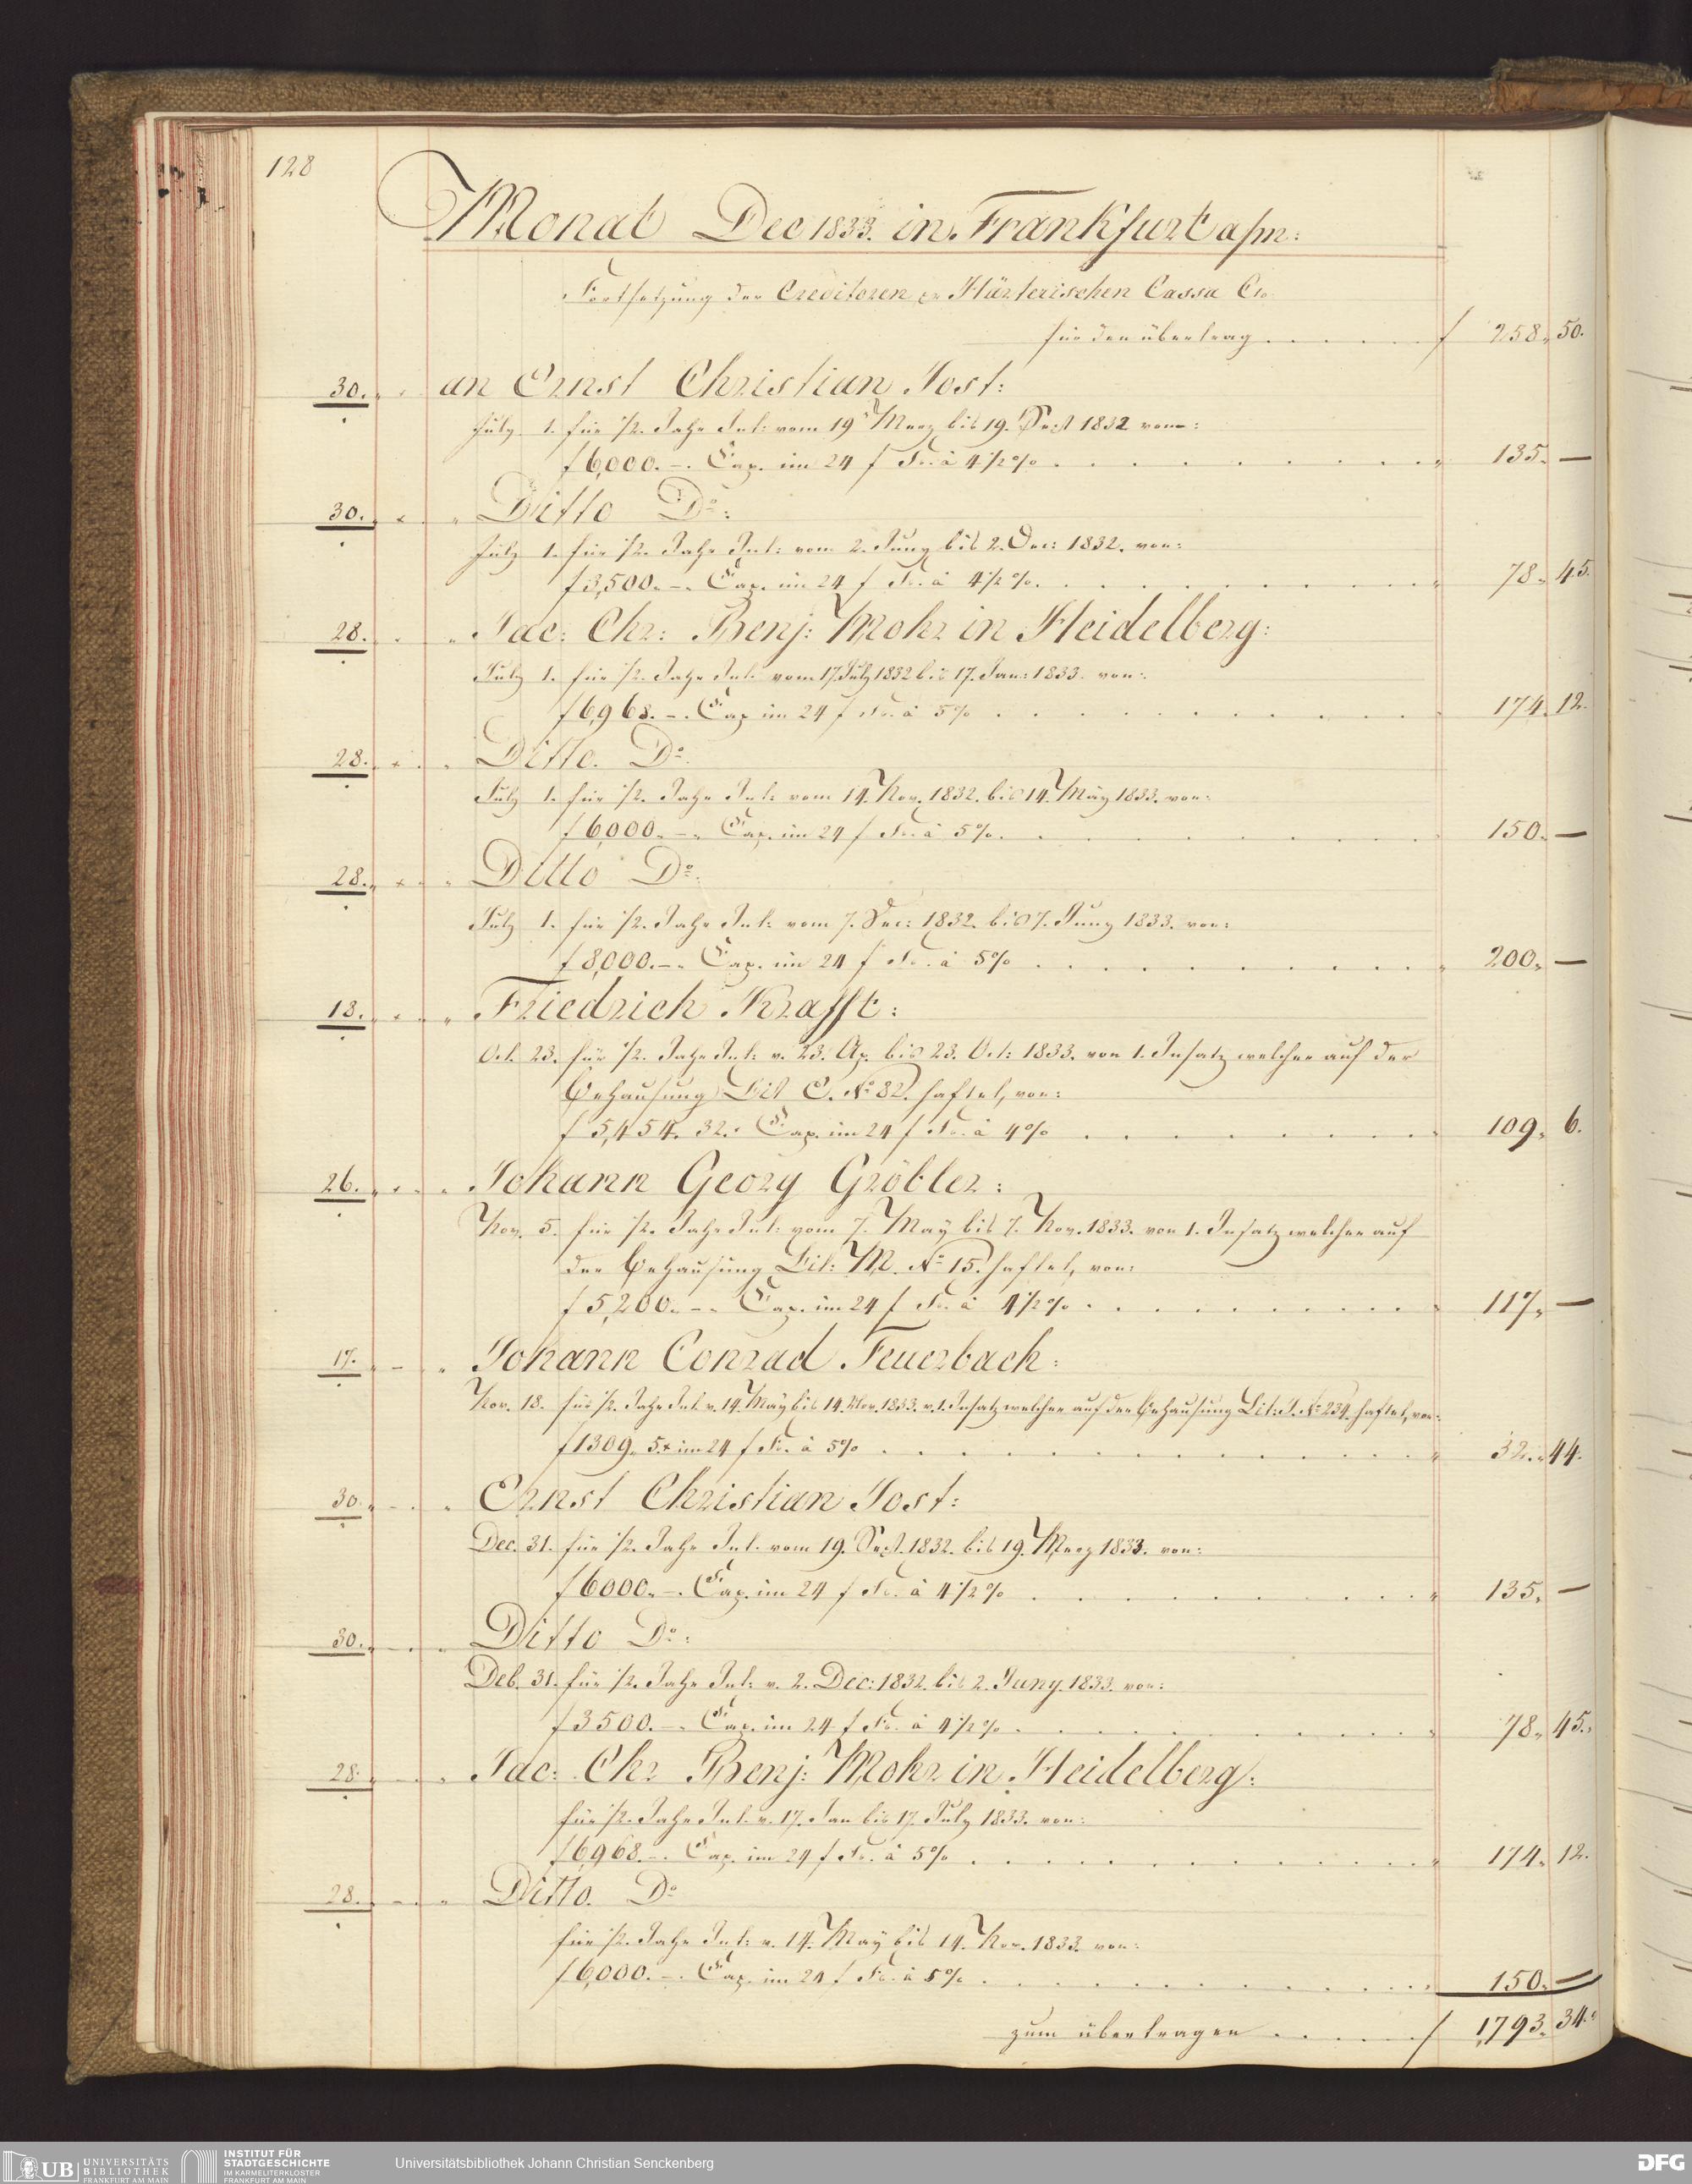 128
Monat Dec 1833. in Frankfurt a/m:
Fortsetzung der Creditoren Härterischen Cassa Cto
für den übertrag . . . . . f 258„ 50.
30. „ an Ernst Christian Jost:
July 1. für ½ Jahr Int: vom 19 Merz bis 19. Sept 1832 von:
f 6,000. –. Cap. im 24 f Fs. à 4½% . . . . „ 135„ —
30. „ „ Ditto Do:
July 1. für ½ Jahr Int: vom 2. Juny bis 2. Dec: 1832. von:
f 3,500. –. Cap. im 24 f Fs. à 4½% . . . . „ 78„ 45.
28. „ „ Jac: Chr: Benj: Mohr in Heidelberg:
July 1. für ½ Jahr Int: vom 17 July 1832 bis 17. Jan: 1833. von:
f 6,968. –. Cap im 24 f Fs. à 5% . . . . „ 174„ 12.
28. „ „ Ditto. Do:
July 1. für ½ Jahr Int: vom 14. Nov. 1832. bis 14. May 1833. von:
f 6,000. –„ Cap. im 24 f Fs. à 5% . . . . „ 150„ —
28. „ „ Ditto Do:
July 1. für ½ Jahr Int: vom 7. Dec: 1832. bis 7. Juny 1833. von:
f 8,000. –„ Cap. im 24 f Fs. à 5% . . . . „ 200„ —
13. „ „ Friedrich Krafft:
Oct. 23. für ½ Jahr Int: v. 23. Ap. bis 23. Oct: 1833. von 1. Insatz welcher auf der
Behausung Lit C. No 82. haftet, von:
f 5,454. 32. Cap. im 24 f Fs. à 4% . . . . „ 109„ 6.
26. „ „ Johann Georg Gröbler:
Nov. 5. für ½ Jahr Int: vom 7. May bis 7. Nov. 1833. von 1. Insatz welcher auf
der Behausung Lit: M. No 15. haftet, von:
f 5,200. –„ Cap. im 24 f Fs. à 4½% . . . . „ 117„ —
17. „ – „ Johann Conrad Feuerbach:
Nov. 18. für ½ Jahr Int. v. 14. May bis 14. Nov. 1833. v. 1. Insatz welcher auf der Behausung Lit: J. No 234. haftet, von:
f 1309„ 5x im 24 f Fs. à 5% . . . . „ 32„ 44.
30. „ – „ Ernst Christian Jost:
Dec. 31. für ½ Jahr Int. vom 19. Sept. 1832. bis 19. Merz 1833. von:
f 6000. –. Cap. im 24 f Fs. à 4½% . . . . „ 135„ —
30. „ – „ Ditto Do:
Deb. 31. für ½ Jahr Int: v. 2. Dec: 1832. bis 2. Juny 1833. von:
f 3500. –. Cap. im 24 f Fs. à 4½% . . . . „ 78„ 45.
28. „ – „ Jac: Chr Benj: Mohr in Heidelberg:
für ½ Jahr Int. v. 17. Jan bis 17. July 1833. von:
f 6,968. –. Cap. im 24 f Fs. à 5% . . . . „ 174„ 12.
28. „ – „ Ditto. Do
für ½ Jahr Int: v. 14. May bis 14. Nov. 1833. von:
f 6,000. –. Cap. im 24 f Fs. à 5% . . . . „ 150„ —
zum übertragen . . . . . f 1793„ 34.
UB UNIVERSITÄTS BIBLIOTHEK FRANKFURT AM MAIN
INSTITUT FÜR STADTGESCHICHTE IM KARMELITERKLOSTER FRANKFURT AM MAIN
Universitätsbibliothek Johann Christian Senckenberg
DFG